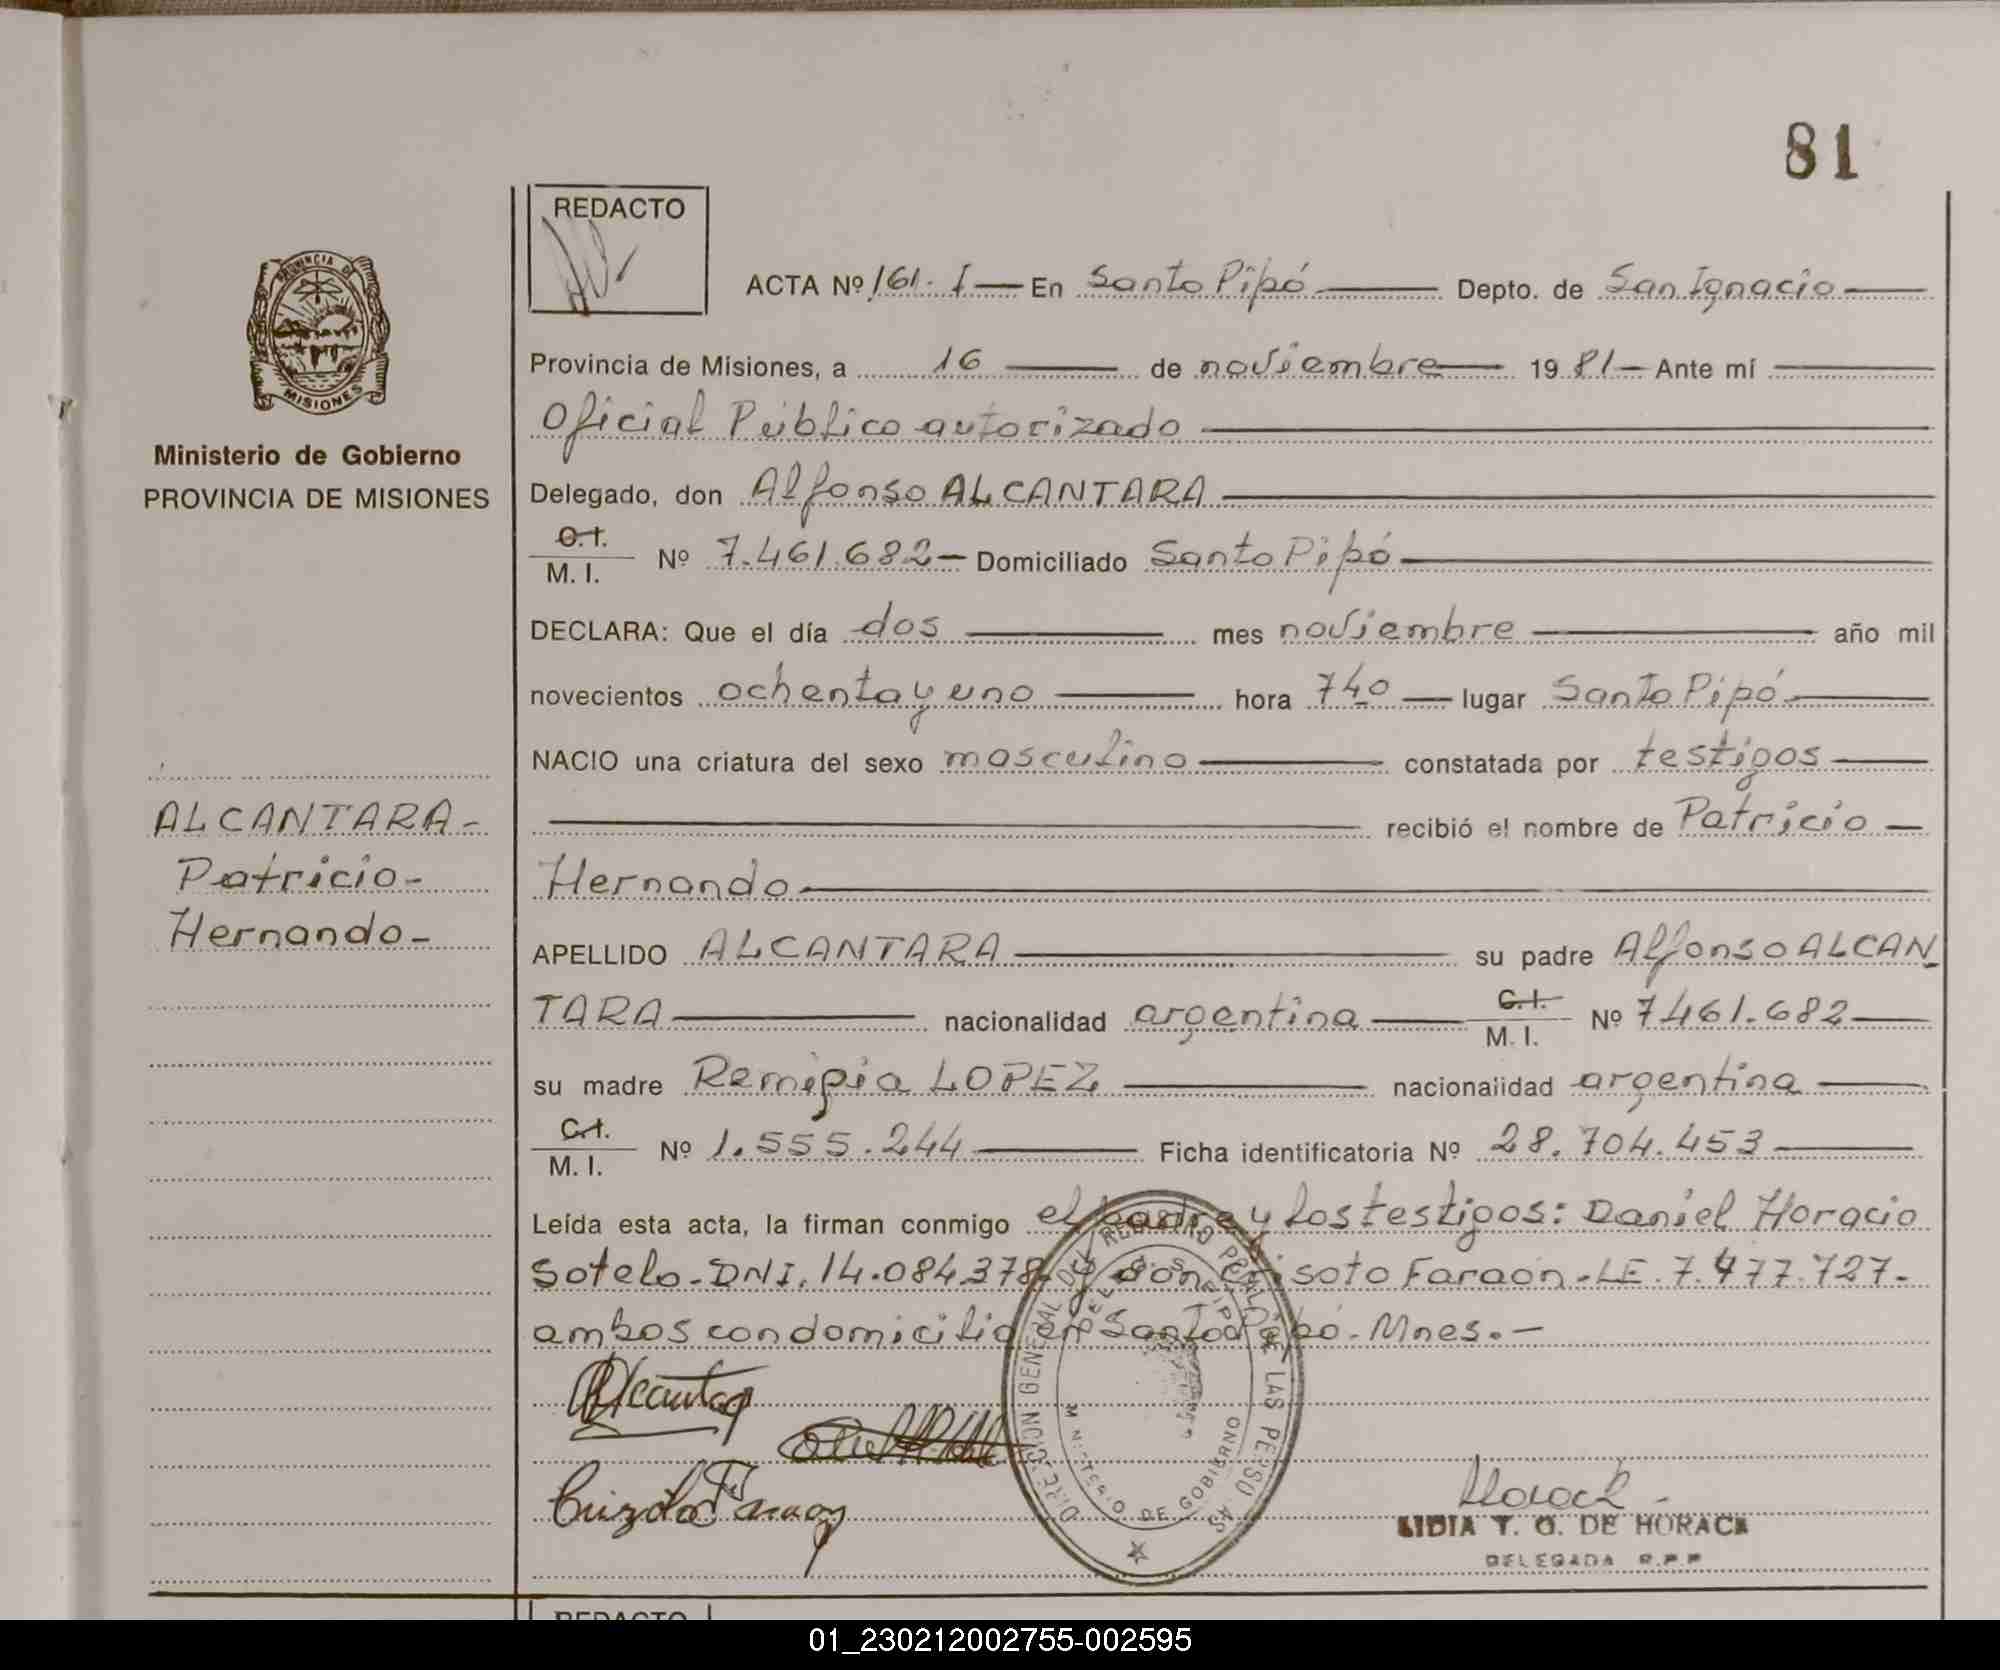 81
REDACTO
ACTA Nº 161. I — En Santo Pipó — Depto. de San Ignacio —
Provincia de Misiones, a 16 — de noviembre — 1981 — Ante mí —
Oficial Público autorizado —
PROVINCIA DE
MISIONES
Ministerio de Gobierno
PROVINCIA DE MISIONES
Delegado, don Alfonso ALCANTARA —
C.I.
M. I. Nº 7.461.682 — Domiciliado Santo Pipó —
DECLARA: Que el día dos — mes noviembre — año mil
novecientos ochenta y uno — hora 7 40 — lugar Santo Pipó —
NACIO una criatura del sexo masculino — constatada por testigos —
— recibió el nombre de Patricio —
Hernando —
ALCANTARA -
Patricio -
Hernando -
APELLIDO ALCANTARA — su padre Alfonso ALCAN
TARA — nacionalidad argentina — C.I. M. I. Nº 7461.682 —
su madre Remigia LOPEZ — nacionalidad argentina —
C.I.
M. I. Nº 1.555.244 — Ficha identificatoria Nº 28.704.453 —
Leída esta acta, la firman conmigo el padre y los testigos: Daniel Horacio
Sotelo - DNI. 14.084.378 y don Crisoto Faraon - LE. 7.477.727 -
ambos con domicilio en Santo Pipó - Mnes. -
DIRECCION GENERAL DEL REGISTRO PCIAL. DE LAS PERSONAS
MINISTERIO DE GOBIERNO
LIDIA T. O. DE HORACK
DELEGADA R.P.P
REDACTO
01_230212002755-002595